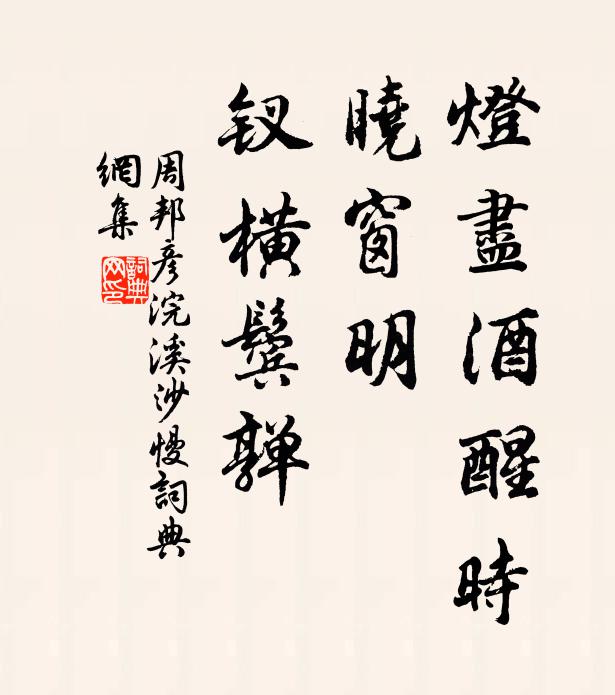 燈盡酒醒時
曉窗明
釵橫鬢亸
周邦彥浣溪沙慢詞典
網集
詞典網印